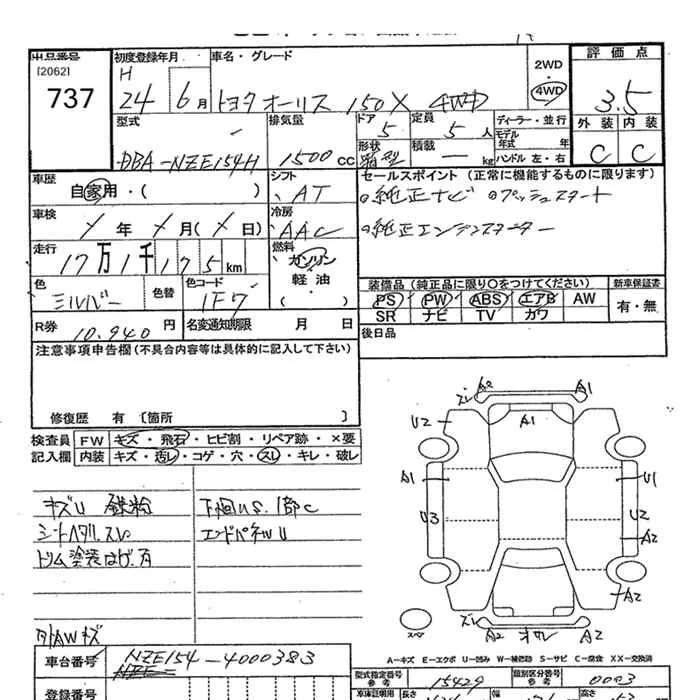 出品番号 [2062] 737
初度登録年月 H 24 年 6 月
車名・グレード トヨタ オーリス 150X 4WD
2WD・4WD
評価点 3.5
外装 C 内装 C
型式 DBA-NZE154H
排気量 1500 cc
ドア 5
定員 5 人
ディーラー・並行
モデル年式 年
形状 箱型
積載 — kg
ハンドル 左・右
車歴 自家用・( )
シフト AT
セールスポイント (正常に機能するものに限ります)
純正ナビ プッシュスタート
純正エンジンスターター
車検 年 月( 日)
冷房 AAC
走行 17万1千175km
燃料 ガソリン・軽油
色 シルバー
色替
色コード 1F7
装備品 (純正品に限り○をつけてください)
PS PW ABS エアB AW
SR ナビ TV カワ
新車保証書 有・無
R券 10,940 円
名変通知期限 月 日
後日品
注意事項申告欄 (不具合内容等は具体的に記入して下さい)
修復歴 有 〔箇所 〕
検査員 FW キズ・飛石・ヒビ割・リペア跡・×要
記入欄 内装 キズ・汚レ・コゲ・穴・スレ・キレ・破レ
キズU
下回りUS.1部C
シートヘタリ.スレ
エンドパネルU
トリム塗装はげ.
AWキズ
スレ A2 A1
U2 A1
A1 U1
U3 U2
A2
A2
スレ
A2 A2
スペ
A-キズ E-エクボ U-凹み W-補修跡 S-サビ C-腐食 XX-交換済
車台番号 NZE154-4000383
登録番号
型式指定番号 参考 15429
類別区分番号 参考 0003
車庫証明用 長さ 幅 高さ